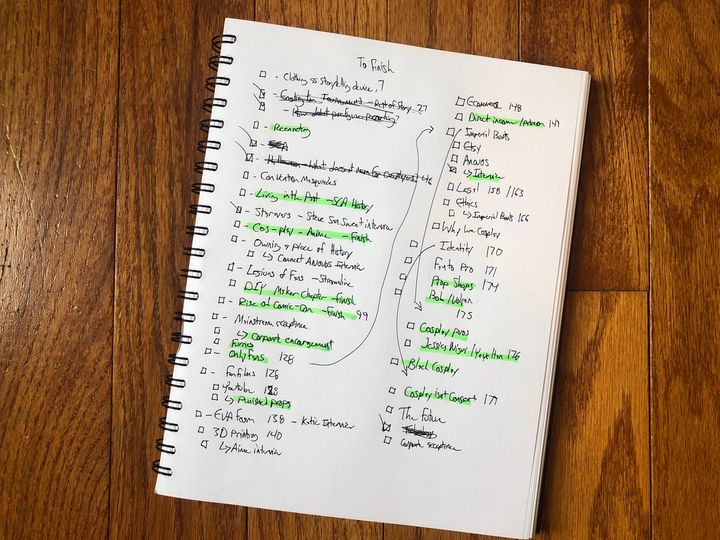 To Finish
- Clothing as storytelling device, 7
- Best of Story, 27
- Reenacting
- SCA
- Convention Masquerades
- Living in the Past - SCA History
- Starwars - Steve Sansweet interview
- Cos-play - Anime - Finish
- Owning a piece of History
↳ Connect ANOVOS Interview
- Legions of Fans - Streamline
- DIY Maker Chapter - Finish
- Rise of Comic-Con - Finish 99
- Mainstream acceptance
↳ Corporate encouragement
Furries
- Onlyfans 128
- Fanfilms 126
Youtube 128
↳ punished props
- EVA Foam 138 - Katie Interview
3D Printing 140
↳ Aime interview
Ecommerce 148
Direct income / patreon 149
Imperial Boots
Etsy
ANOVOS
↳ Interview
Legal 158 / 163
Ethics
↳ Imperial Boots 166
Why we Cosplay
Identity 170
Fan to Pro 171
Prop Shops 174
175
Cosplay pros
176
Black Cosplay
Cosplay isnt Consent 179
The Future
Corporate acceptance